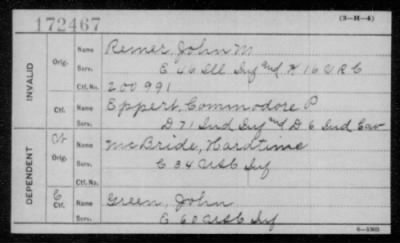 172467 (3-H-4)
INVALID
Orig. Name Remer, John M
Serv. E 46 Ill Inf and H 16 V R C
Ctf. No. 200 991
Ctf. Name Eppert, Commodore P
Serv. D 71 Ind Inf and D 6 Ind Cav
DEPENDENT
Orig. Name McBride, Hardtime
Serv. C 34 USC Inf
Ctf. No.
C Ctf. Name Green, John
Serv. E 60 USC Inf